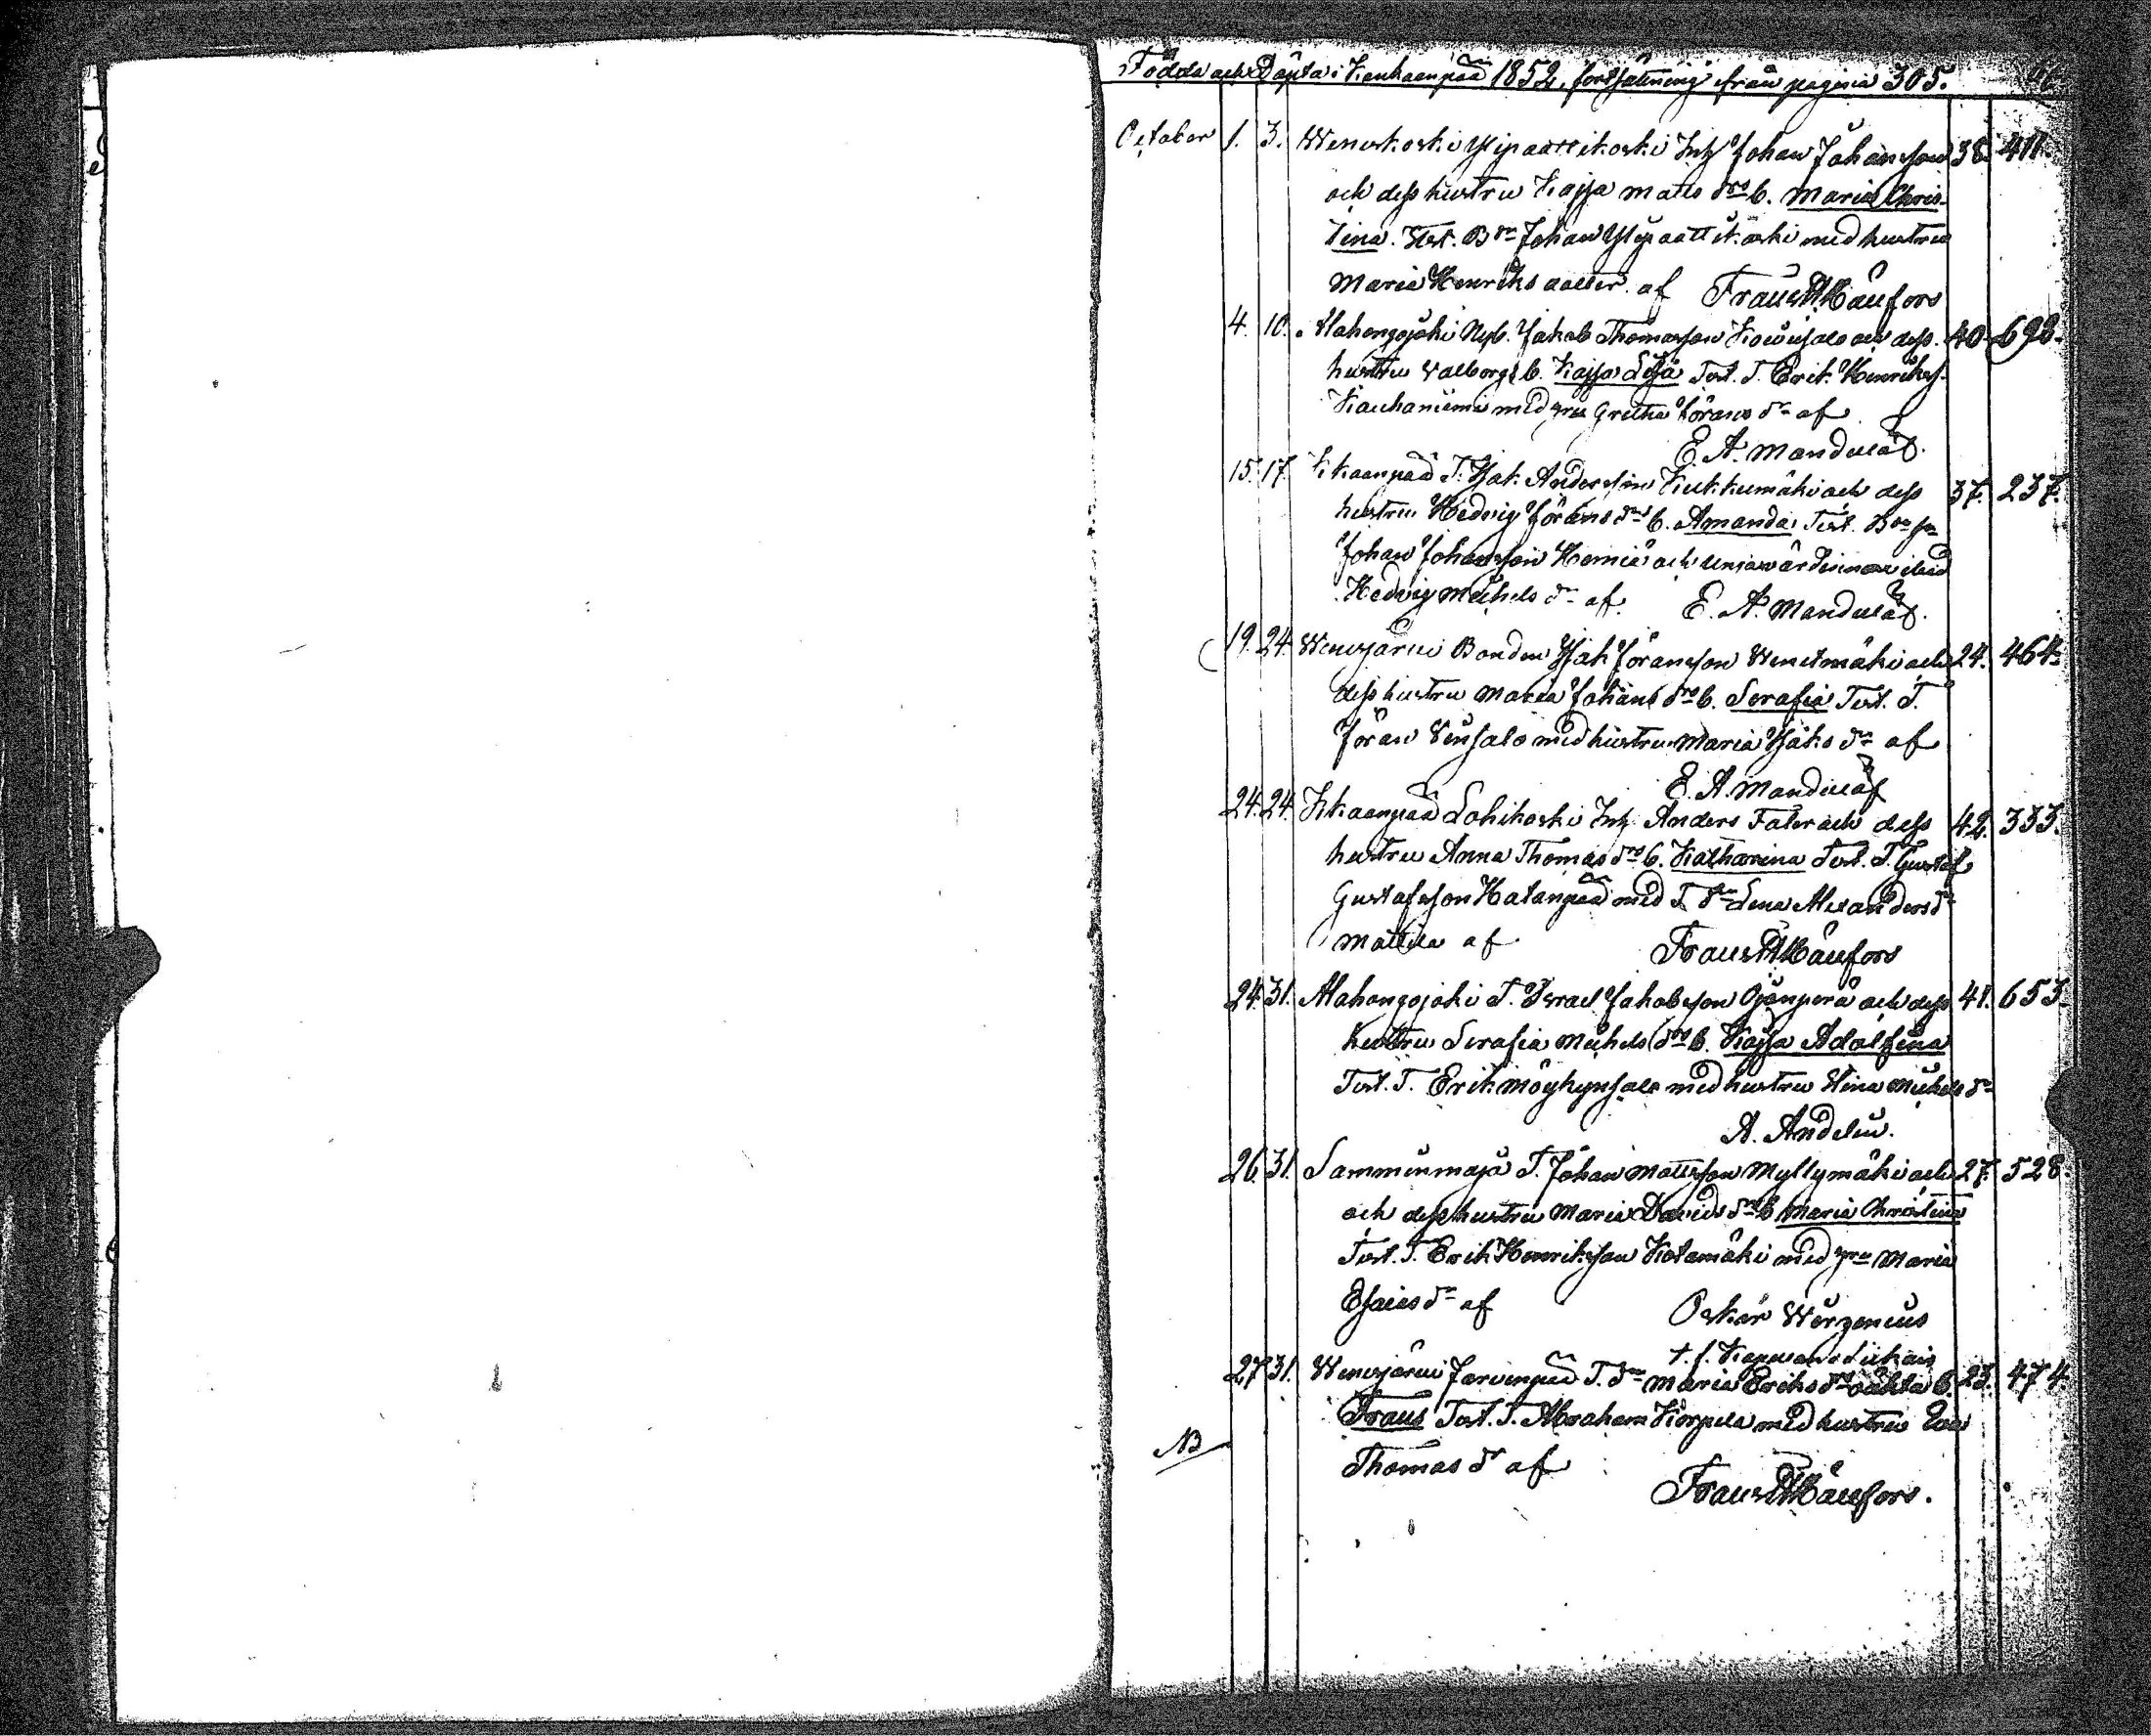 Födde och Döpta i Kankaanpää 1852, fortsättning från pagina 305.
October 1. 3. Weneskoski Ylipaattikoski Inh Johan Johansson 38. 411.
och dess hustru Kajsa Matts drs b. Maria Chris-
tina. Test. Bdn Johan Ylipaattikoski med hustru
Maria Henriks dotter. af Frans H Häufors
4. 10. Alahongojoki Nyb. Jakob Thomasson Koivusalo och dess 40. 692.
hustru Valborg b. Kajsa Lisa Test. T. Erik Henrikss.
Kauhaniemi med hru Gretha Jörans dr af
E. A. Mandelöf.
15. 17. Kkaanpää T. Isak Andersson Kukkumäki och dess 37. 237.
hustru Hedvig Jörans drs b. Amanda Test. Bdesn
Johan Johansson Hernie och unga värdinnan ibid
Hedvig Michels dr af E. A. Mandelöf.
19. 24. Wenesjärvi Bonden Isak Jöransson Wenesmäki och 24. 464.
dess hustru Maria Johans drs b. Serafia Test. T.
Jöran Vensalo med hustru Maria Isaks dr af
E. A. Mandelöf
24. 24. Kkaanpää Lohikoski Inh Anders Faler och dess 42. 333.
hustru Anna Thomas drs b. Katharina Test. T. Gustaf
Gustafsson Hatanpää med T. dr Lena Alexanders dr
Mattila af Frans H Häufors
24. 31. Alahongojoki T. Israel Jakobsson Ojanperä och dess 41. 653.
hustru Serafia Michels drs b. Kajsa Adolfina
Test. T. Erik Möykynsalo med hustru Stina Michels dr
A. Andelin.
26. 31. Samminmaja T. Johan Mattsson Myllymäki och 27. 528.
och dess hustru Maria Davids drs b. Maria Christina
Test. T. Erik Henriksson Kotamäki med hru Maria
Esaias dr af Oskar Werzenius
t. f. Kapellans
27. 31. Wenesjärvi Jarvenpää T. dr Maria Eriks drs oäkta b. 23. 474.
Frans Test. T. Abraham Korpela med hustru Eva
NB Thomas dr af
Frans H Häufors.